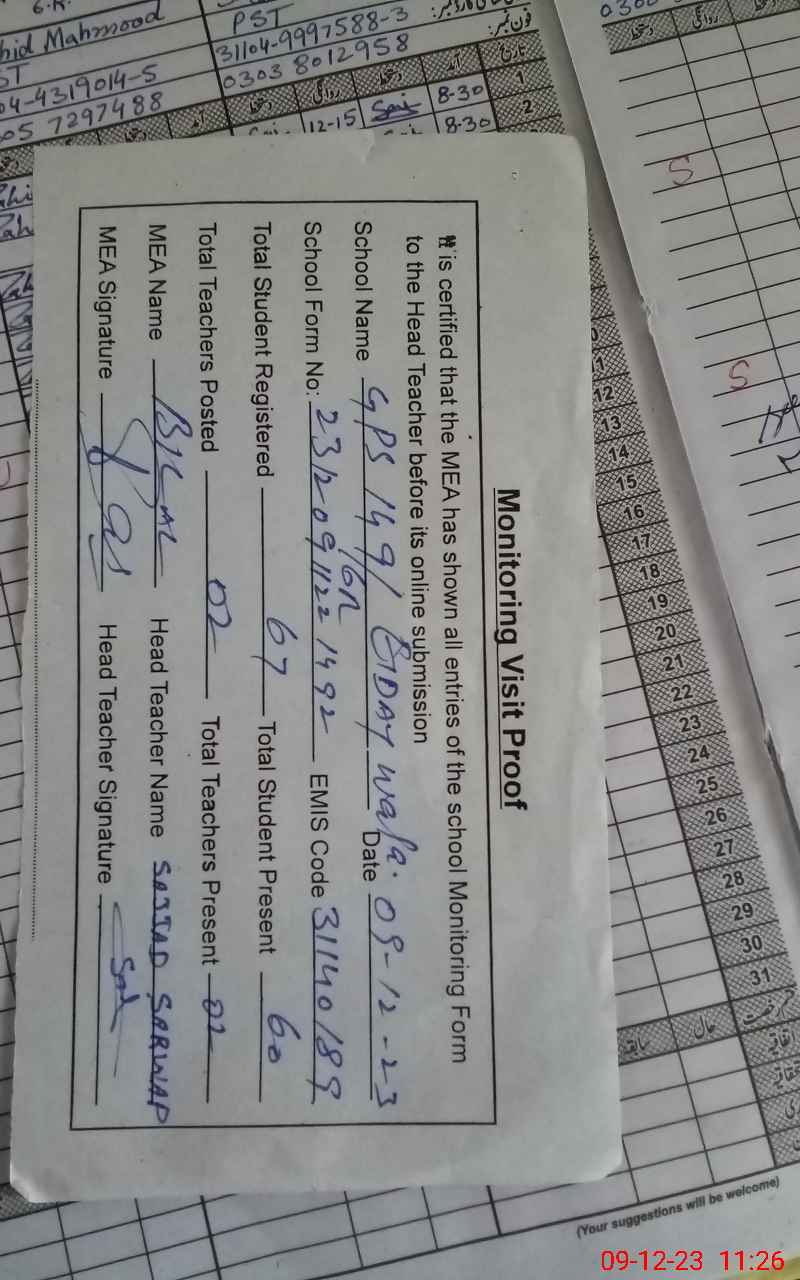 hid Mahmood
PST
04-4319014-5
31104-9997588-3
05 7297488
0303 8012958
فون نمبر:
تاریخ
آمد
دستخط
روانگی
دستخط
1
8-30
12-15
2
8-30
Monitoring Visit Proof
It is certified that the MEA has shown all entries of the school Monitoring Form
to the Head Teacher before its online submission
School Name GPS 149/6R Date 09-12-23
School Form No: 23120911221492 EMIS Code 31140189
Total Student Registered 67 Total Student Present 60
Total Teachers Posted 02 Total Teachers Present 02
MEA Name BILAL Head Teacher Name SAJJAD SARWAR
MEA Signature Head Teacher Signature
11
12
13
14
15
16
17
18
19
20
21
22
23
24
25
26
27
28
29
30
31
حال
سابقہ
(Your suggestions will be welcome)
09-12-23 11:26